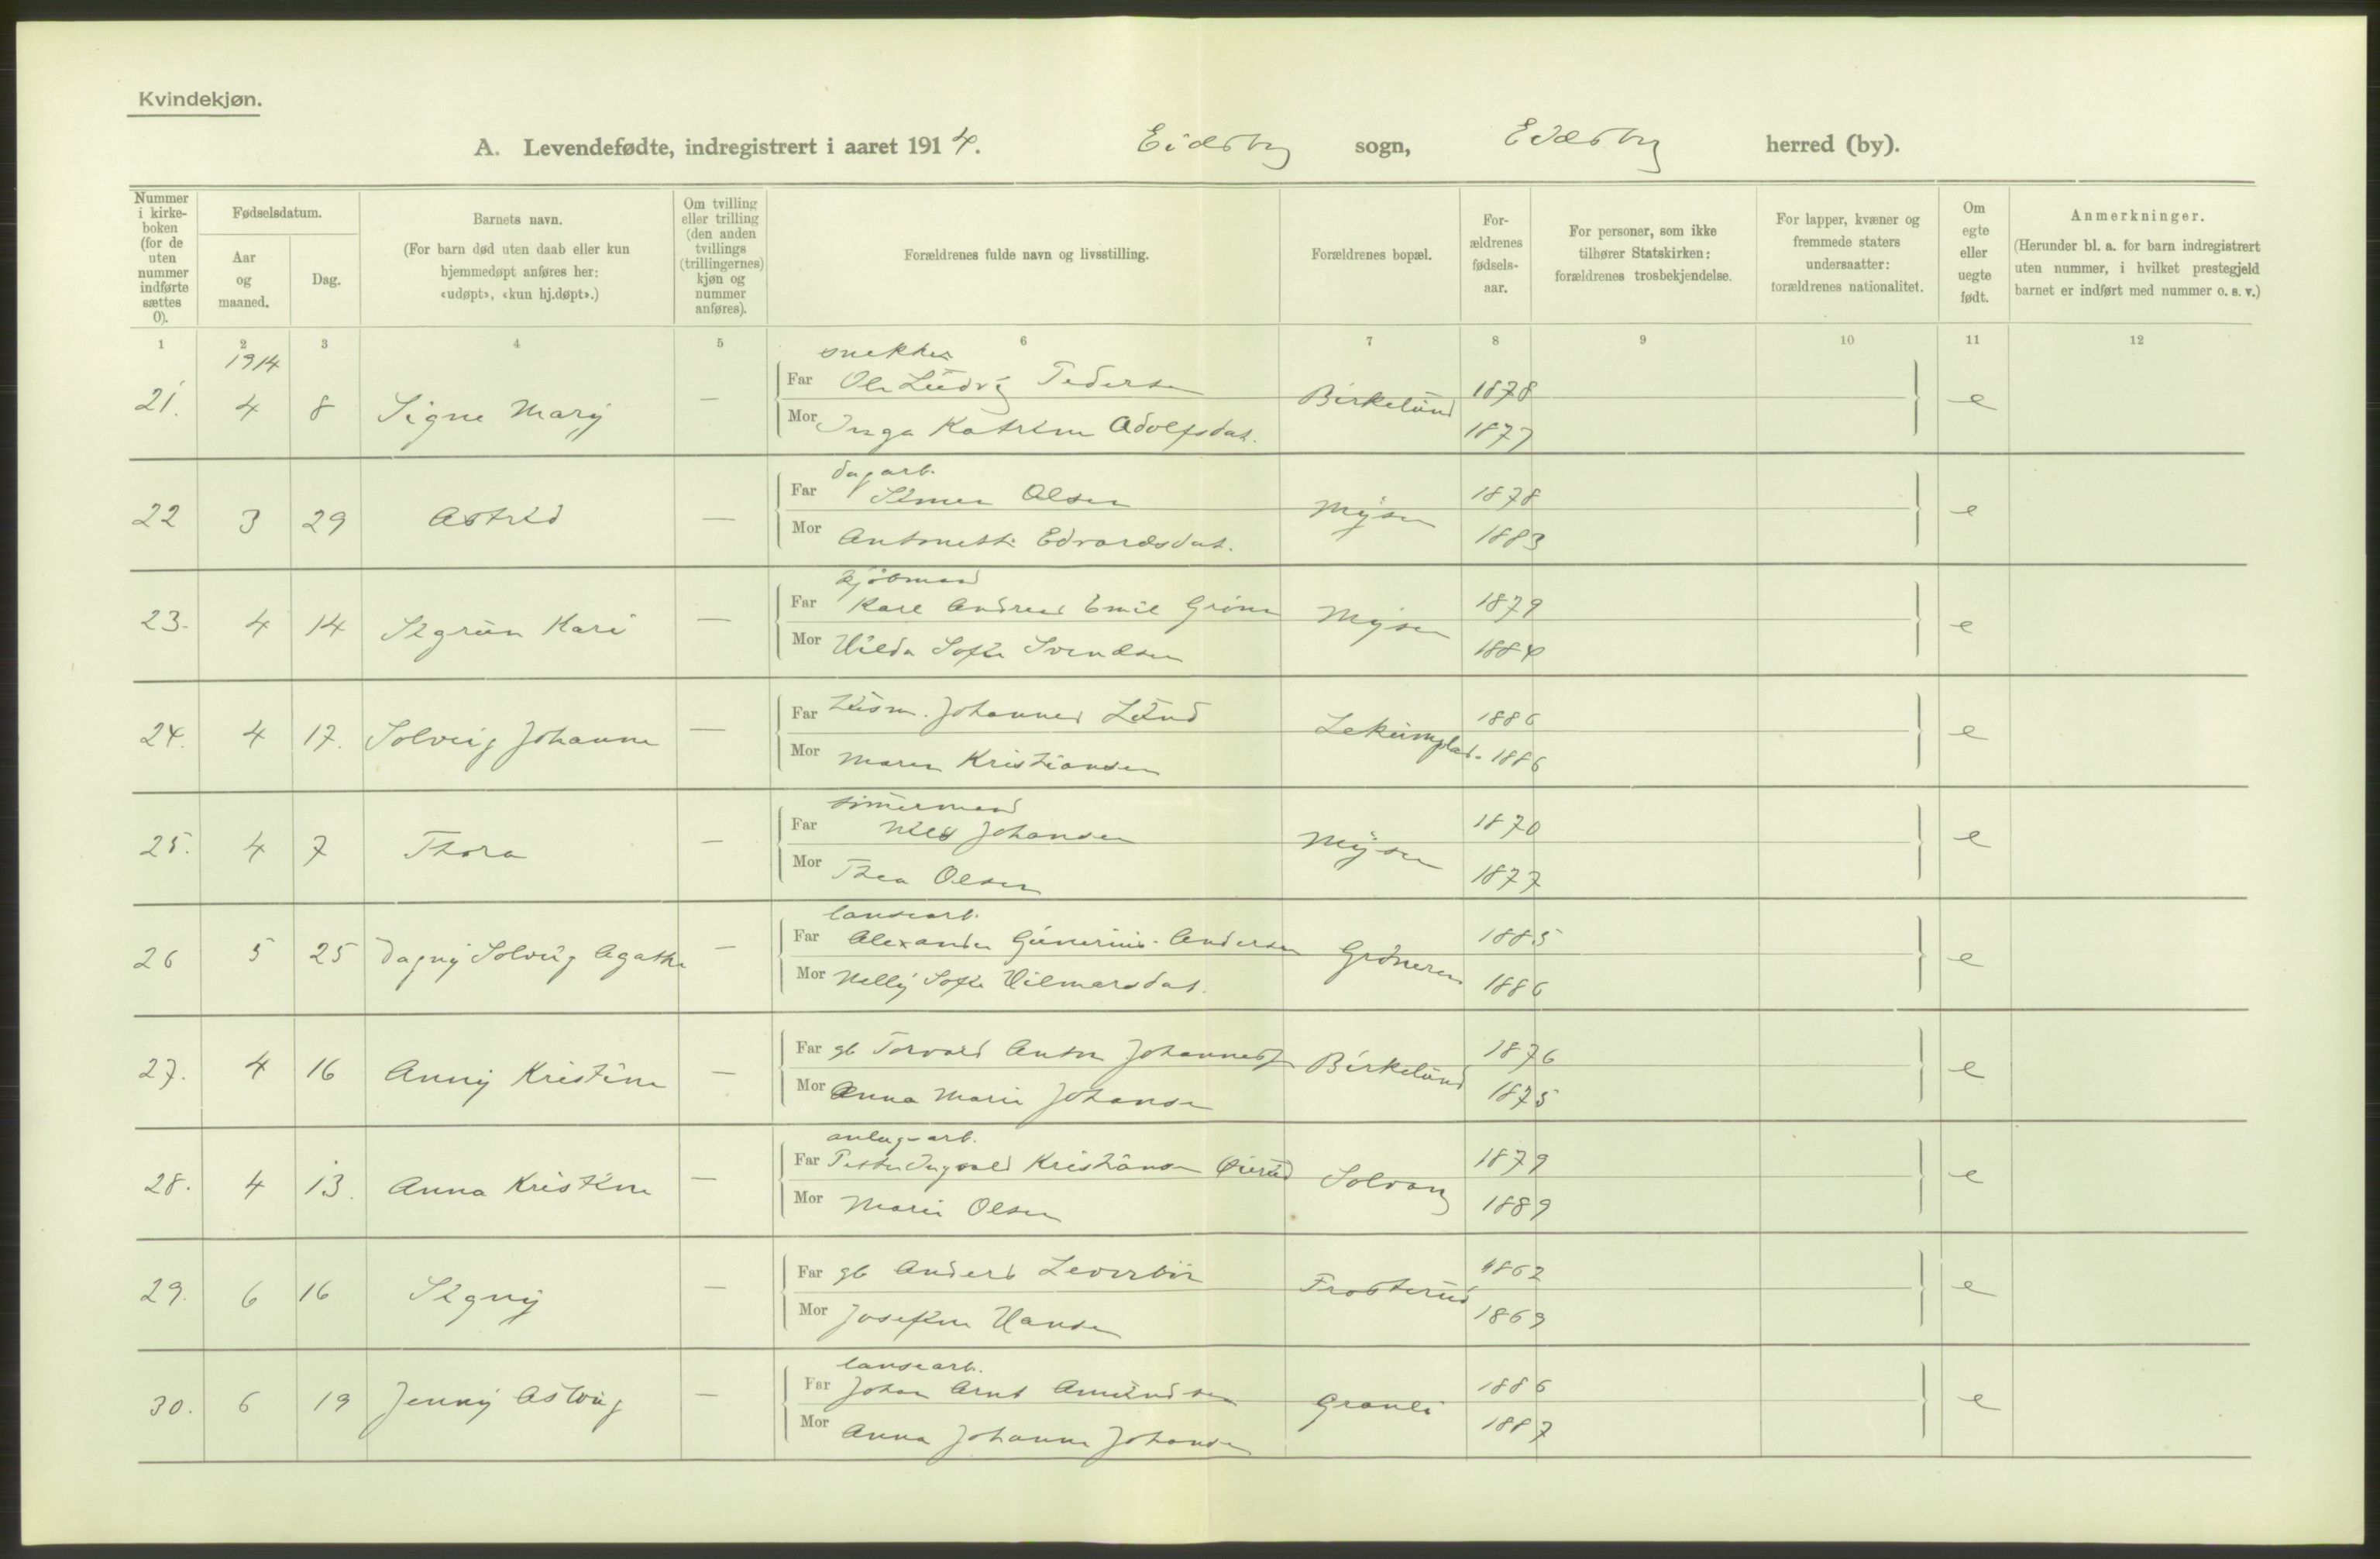 Kvindekjøn.
A. Levendefødte, indregistrert i aaret 1914. Eidsberg sogn, Eidsberg herred (by).
Nummer i kirkeboken (for de uten nummer indførte sættes 0).
Fødselsdatum.
Aar og maaned.
Dag.
Barnets navn.
(For barn død uten daab eller kun hjemmedøpt anføres her: «udøpt», «kun hj.døpt».)
Om tvilling eller trilling (den anden tvillings (trillingernes) kjøn og nummer anføres).
Forældrenes fulde navn og livsstilling.
Forældrenes bopæl.
Forældrenes fødselsaar.
For personer, som ikke tilhører Statskirken: forældrenes trosbekjendelse.
For lapper, kvæner og fremmede staters undersaatter: forældrenes nationalitet.
Om egte eller uegte født.
Anmerkninger.
(Herunder bl. a. for barn indregistrert uten nummer, i hvilket prestegjeld barnet er indført med nummer o. s. v.)
1 2 3 4 5 6 7 8 9 10 11 12
1914
21. 4 8 Signe Mary — Far snekker Ole Ludvig Pedersen Birkelund 1878 e
Mor Inga Katrine Adolfsdat. 1877
22 3 29 Astrid — Far dagarb. Simen Olsen Mysen 1878 e
Mor Antonette Edvardsdat. 1883
23. 4 14 Sigrun Kari — Far kjøbmand Karl Andreas Emil Mysen 1879 e
Mor Hilda Sofie Svendsen 1884
24. 4 17. Solveig Johanne — Far husm. Johannes Lund Lekumplads 1886 e
Mor Maren Kristiansen 1886
25. 4 7 Thora — Far tømermand Nils Johansen Mysen 1870 e
Mor Thea Olsen 1877
26 5 25 Dagny Solveig Agathe — Far Alexander Gunerius Andersen Grøneren 1885 e
Mor Nelly Sofie Hilmarsdat. 1886
27. 4 16 Anny Kristine — Far gb Torvald Anton Johannes Birkelund 1876 e
Mor Anna Marie Johansen 1875
28. 4 13. Anna Kristine — Far anlægsarb. Petter Ingvald Kristiansen Solvang 1879 e
Mor Marie Olsen 1889
29. 6 16 Signy — Far gb Anders Frosterud 1862 e
Mor Josefine Hansen 1869
30. 6 19 Jenny Astvig — Far Johan Arnt Amundsen Granli 1886 e
Mor Anna Johanne Johansen 1887